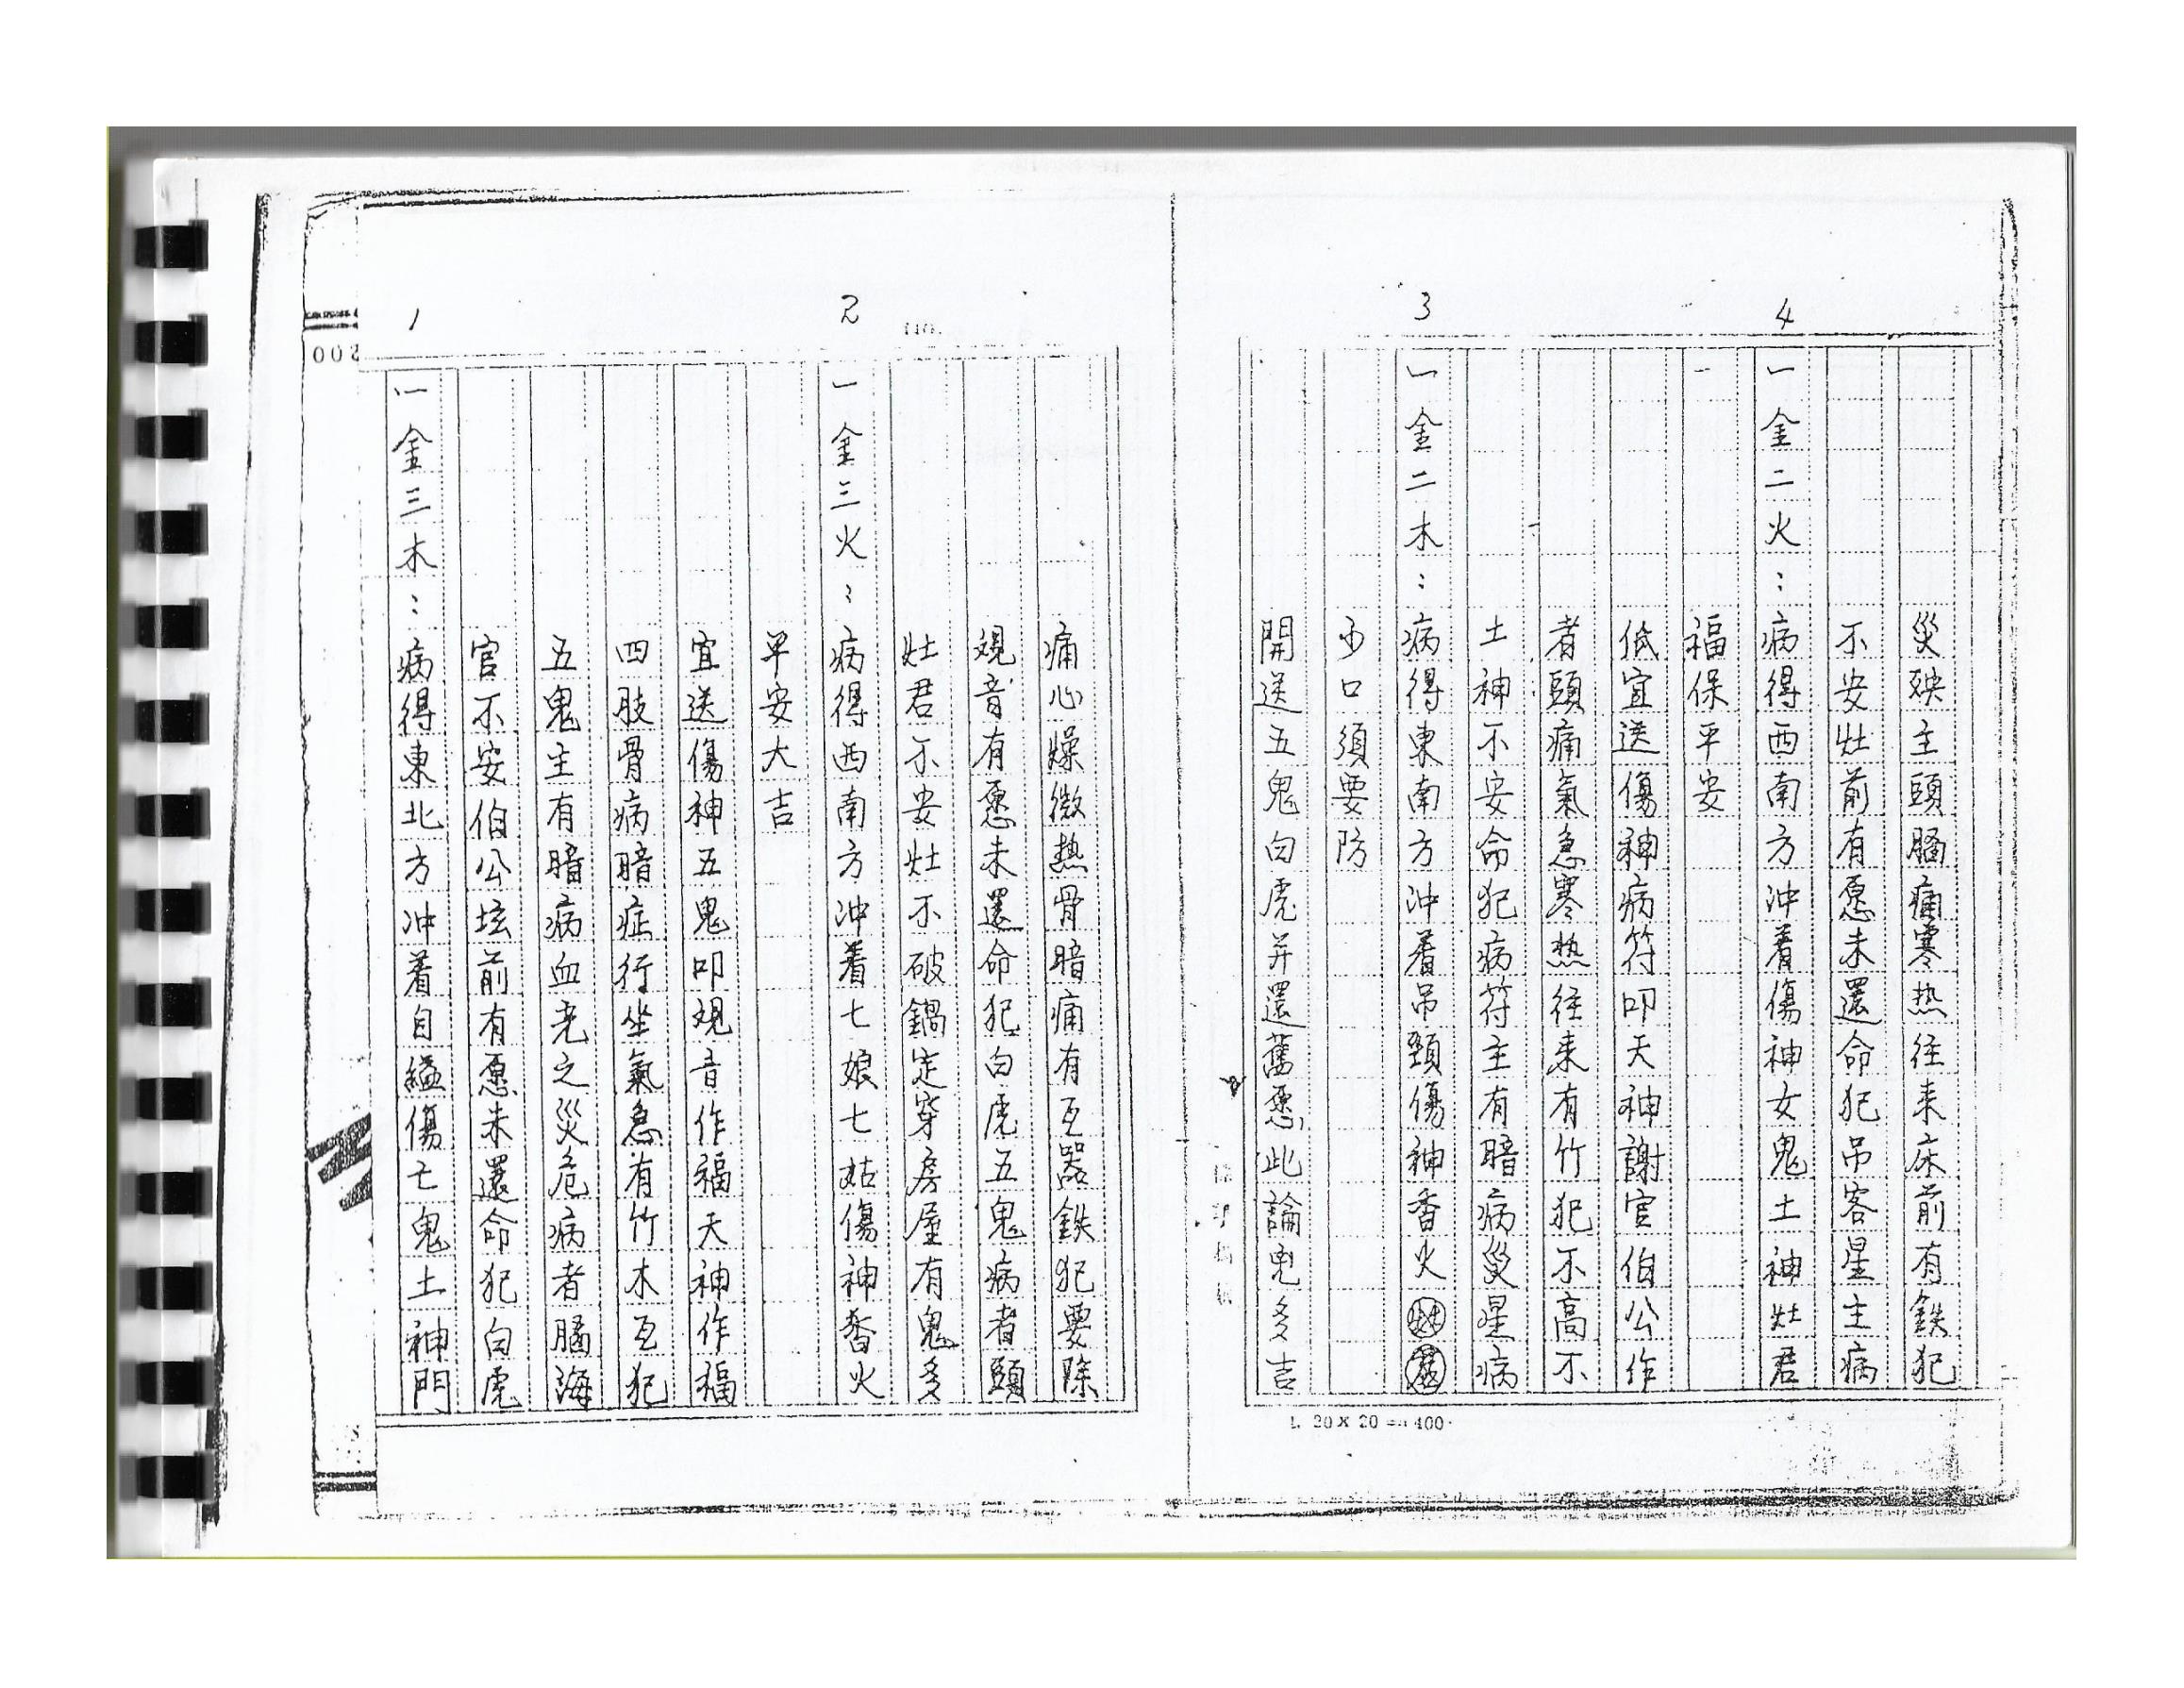 1
一金三木：病得東北方冲着自縊傷亡鬼土神門
官不安伯公坛前有愿未還命犯白虎
五鬼主有暗病血光之災危病者腦海
四肢骨病暗症行坐氣急有竹木瓦犯
宜送傷神五鬼叩观音作福天神作福
平安大吉
2
一金三火：病得西南方冲着七娘七姑傷神香火
灶君不安灶不破鍋定穿房屋有鬼多
观音有愿未還命犯白虎五鬼病者頭
痛心燥微熱骨暗痛有瓦器鉄犯要除
開送五鬼白虎并還舊愿此論鬼多吉
少口須要防
3
一金二木：病得東南方冲着吊頸傷神香火
土神不安命犯病符主有暗病災星病
者頭痛氣急寒熱往来有竹犯不高不
低宜送傷神病符叩天神謝官伯公作
福保平安
4
一金二火：病得西南方冲着傷神女鬼土神灶君
不安灶前有愿未還命犯吊客星主病
災殃主頭腦痛寒热往来床前有鉄犯
002
20×20＝400